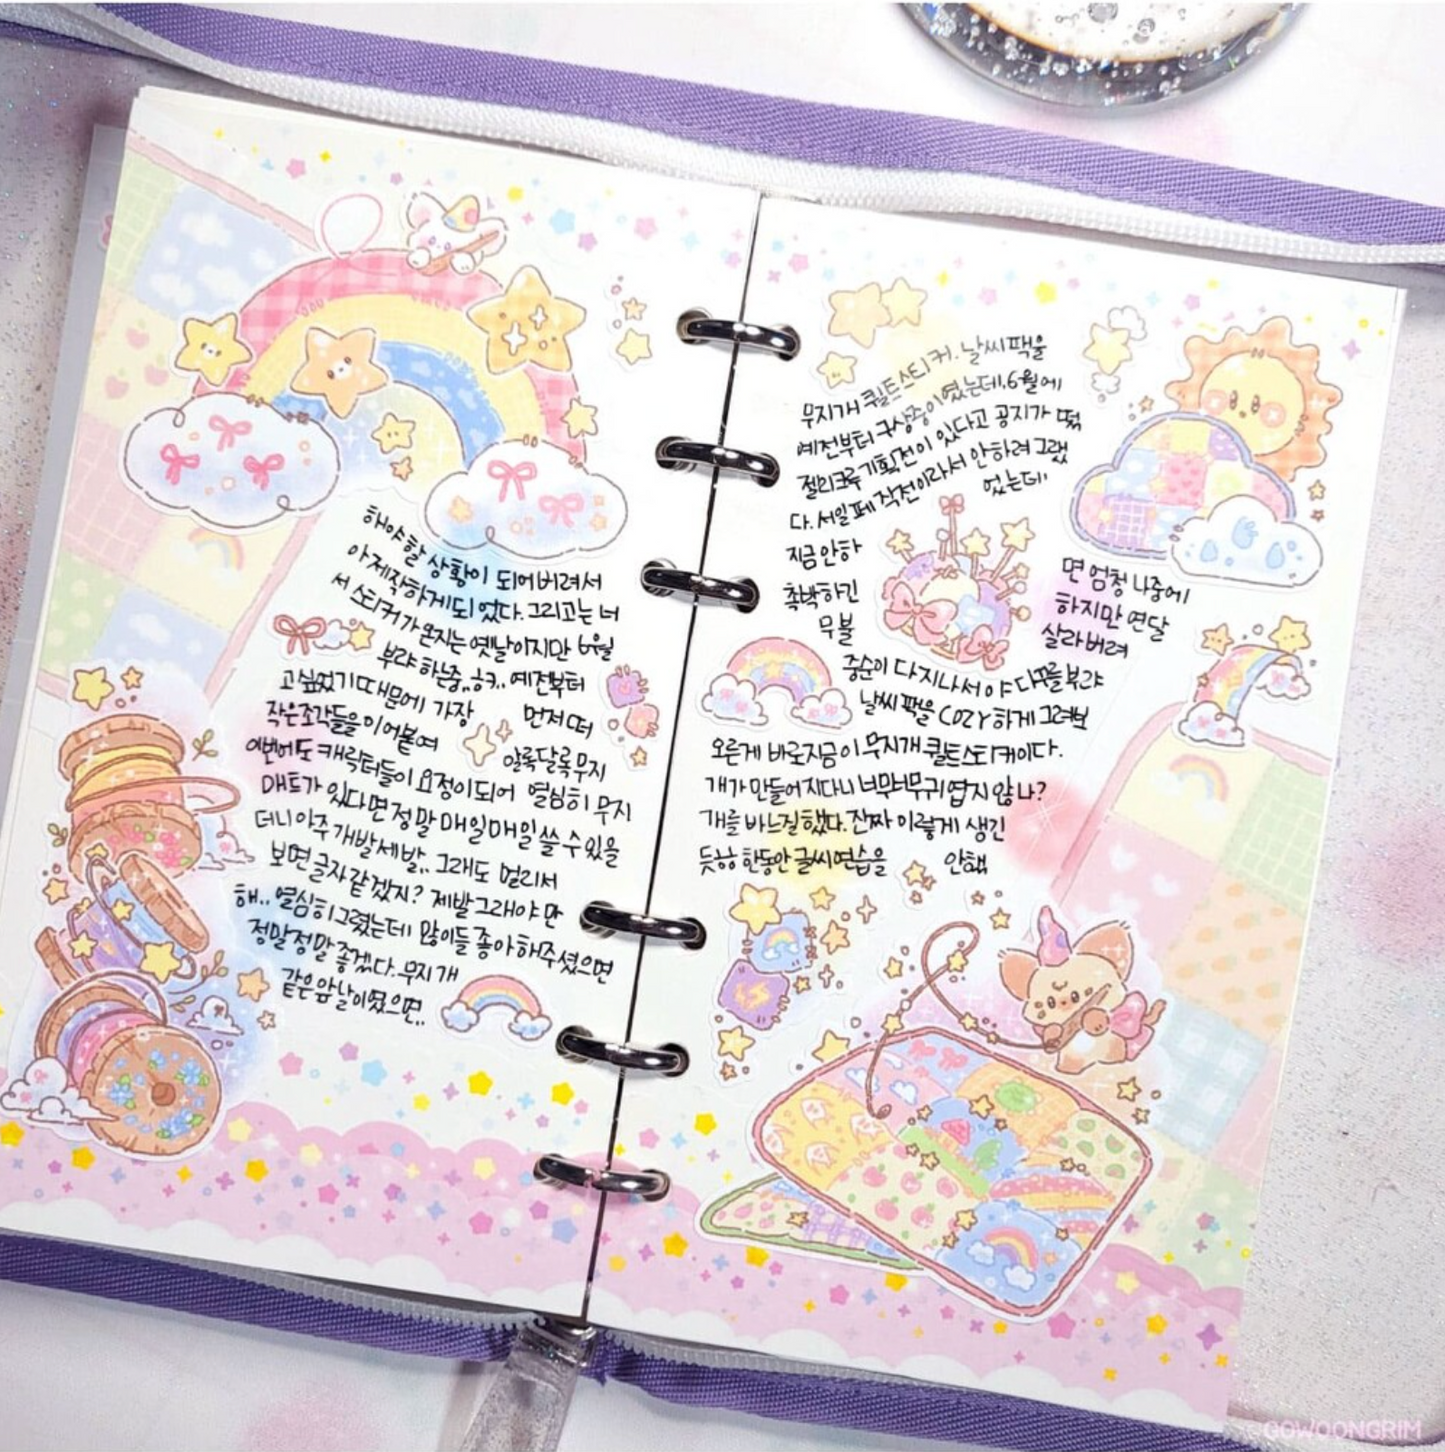 해야할 상황이 되어버려서
아 제작하게 되었다. 그리고는 너
서 스티커가 온지는 옛날이지만 6월
부랴 하는중,, ㅎㅋ.. 예전부터
고 싶었기 때문에 가장 먼저 떠
작은 조각들을 이어붙여 알록달록 무지
이번에도 캐릭터들이 요정이 되어 열심히 무지
매트가 있다면 정말 매일매일 쓸 수 있을
더니 아주 개발세발,, 그래도 멀리서
보면 글자 같겠지? 제발 그래야만
해.. 열심히 그렸는데 많이들 좋아해주셨으면
정말정말 좋겠다. 무지개
같은 앞날이였으면..
무지개 퀼트스티커. 날씨팩을
예전부터 구상중이였는데, 6월에
젤리크루 기획전이 있다고 공지가 떴
다. 서일페 직전이라서 안하려 그랬
었는데,
지금 안하면 엄청 나중에
촉박하긴 하지만 연달
무불 살라버려
중순이 다 지나서야 다꾸를 부랴
날씨팩을 cozy하게 그려보
오른게 바로 지금 이 무지개 퀼트스티커이다.
개가 만들어지다니 너무너무 귀엽지 않나?
개를 바느질했다. 진짜 이렇게 생긴
듯ㅎㅎ 한동안 글씨연습을 안했
©GOWOONGRIM